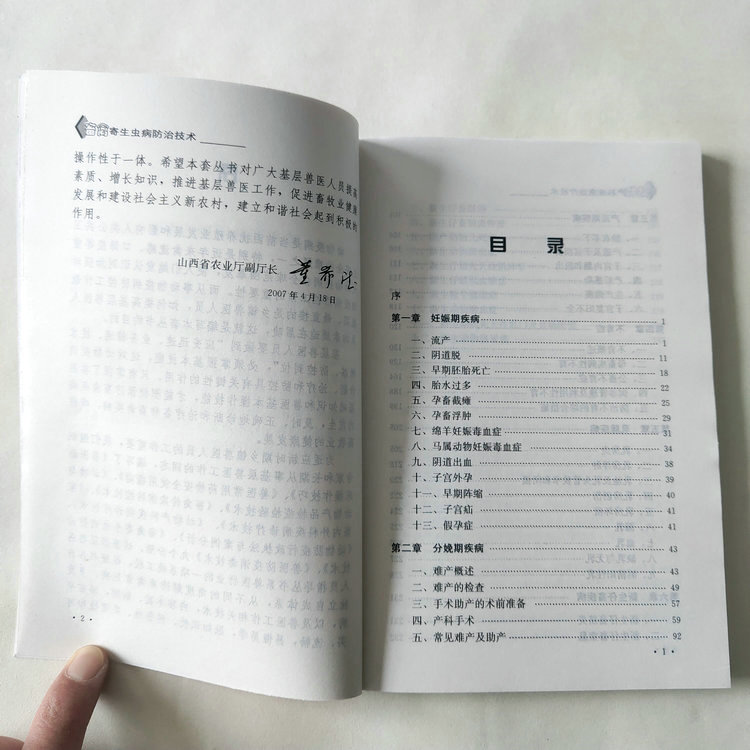 畜禽寄生虫病防治技术
操作性于一体。希望本套丛书对广大基层兽医人员提高
素质、增长知识，推进基层兽医工作，促进畜牧业健康
发展和建设社会主义新农村，建立和谐社会起到积极的
作用。
山西省农业厅副厅长
2007年4月18日
·2·
目 录
序
第一章 妊娠期疾病 1
一、流产 1
二、阴道脱 11
三、早期胚胎死亡 18
四、胎水过多 22
五、孕畜截瘫 26
六、孕畜浮肿 29
七、绵羊妊娠毒血症 31
八、马属动物妊娠毒血症 34
九、阴道出血 38
十、子宫外孕 39
十一、早期阵缩 41
十二、子宫疝 41
十三、假孕症 41
第二章 分娩期疾病 43
一、难产概述 43
二、难产的检查 49
三、手术助产的术前准备 57
四、产科手术 59
五、常见难产及助产 92
·1·